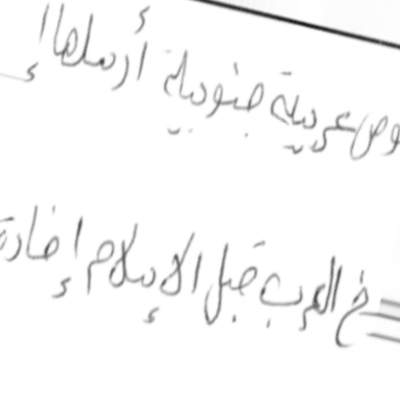 وص عربية جنوبية أرسلها إ
خ العرب قبل الإسلام إضادة